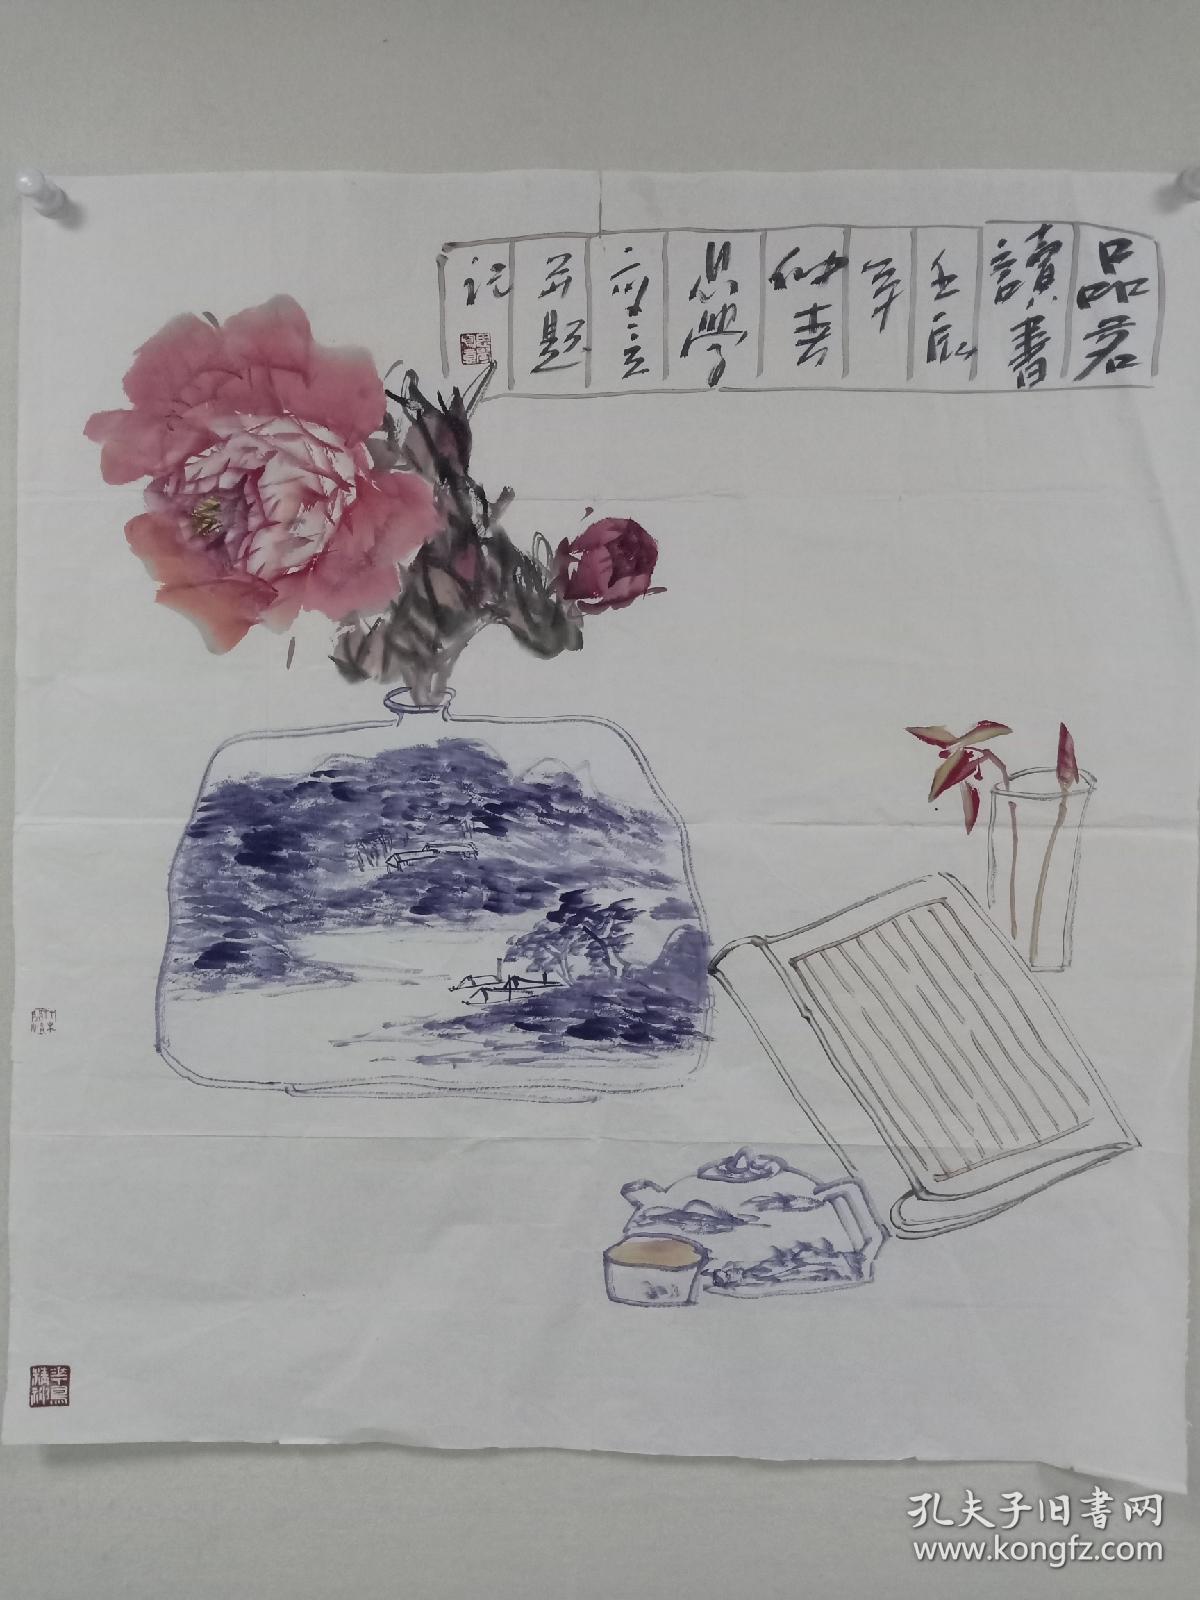 品茗
讀書
壬辰
年
仲春
思學
並題
記
孔夫子旧书网
www.kongfz.com